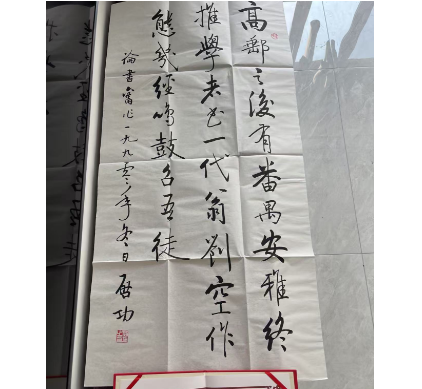 高郵之後有番禺安雅終
推學老色一代翁劉空作
態幾經鳴鼓召吾徒
論書舊作一九九零年冬日 啟功